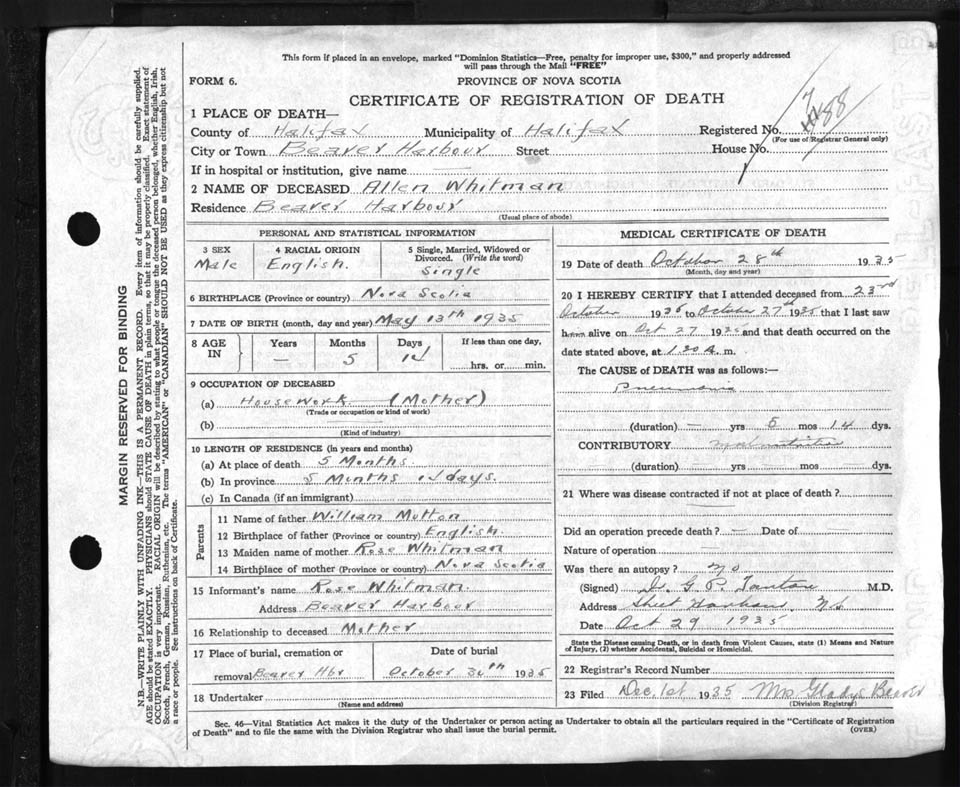 This form if placed in an envelope, marked "Dominion Statistics—Free, penalty for improper use, $300," and properly addressed
will pass through the Mail "FREE"
FORM 6.
PROVINCE OF NOVA SCOTIA
CERTIFICATE OF REGISTRATION OF DEATH
1 PLACE OF DEATH—
County of Halifax Municipality of Halifax Registered No.
(For use of Registrar General only)
City or Town Beaver Harbour Street House No.
If in hospital or institution, give name
2 NAME OF DECEASED Allen Whitman
Residence Beaver Harbour
(Usual place of abode)
PERSONAL AND STATISTICAL INFORMATION
3 SEX Male
4 RACIAL ORIGIN English.
5 Single, Married, Widowed or Divorced. (Write the word) Single
6 BIRTHPLACE (Province or country) Nova Scotia
7 DATE OF BIRTH (month, day and year) May 13th 1935
8 AGE IN
Years — Months 5 Days 14
If less than one day, hrs. or min.
9 OCCUPATION OF DECEASED
(a) Housework (Mother)
(Trade or occupation or kind of work)
(b)
(Kind of industry)
10 LENGTH OF RESIDENCE (in years and months)
(a) At place of death 5 Months
(b) In province 5 Months 14 days.
(c) In Canada (if an immigrant)
Parents
11 Name of father William Mutton
12 Birthplace of father (Province or country) English
13 Maiden name of mother Rose Whitman
14 Birthplace of mother (Province or country) Nova Scotia
15 Informant's name Rose Whitman.
Address Beaver Harbour
16 Relationship to deceased Mother
17 Place of burial, cremation or removal Beaver Hbr
Date of burial October 30th 1935
18 Undertaker
(Name and address)
MEDICAL CERTIFICATE OF DEATH
19 Date of death October 28th 1935
(Month, day and year)
20 I HEREBY CERTIFY that I attended deceased from 23rd
October 1935 to October 27th 1935 that I last saw
him alive on Oct 27 1935 and that death occurred on
date stated above, at 1.30 A. m.
The CAUSE of DEATH was as follows:—
Pneumonia
(duration) — yrs mos 14 dys.
CONTRIBUTORY Malnutrition
(duration) yrs mos dys.
21 Where was disease contracted if not at place of death?
Did an operation precede death? — Date of
Nature of operation —
Was there an autopsy? No
(Signed) G. P. M.D.
Address Sheet Harbour, N.S
Date Oct 29 1935
State the Disease causing Death, or in death from Violent Causes, state (1) Means and Nature
of Injury, (2) whether Accidental, Suicidal or Homicidal.
22 Registrar's Record Number
23 Filed Dec. 1st 1935 Mrs Gladys Beaver
(Division Registrar)
Sec. 46—Vital Statistics Act makes it the duty of the Undertaker or person acting as Undertaker to obtain all the particulars required in the "Certificate of Registration
of Death" and to file the same with the Division Registrar who shall issue the burial permit. (OVER)
MARGIN RESERVED FOR BINDING
N.B.—WRITE PLAINLY WITH UNFADING INK—THIS IS A PERMANENT RECORD. Every item of information should be carefully supplied.
AGE should be stated EXACTLY. PHYSICIANS should STATE CAUSE OF DEATH in plain terms, so that it may be properly classified. Exact statement of
OCCUPATION is very important. RACIAL ORIGIN will be described by stating to what people or tongue the deceased person belonged, whether English, Irish,
Scotch, French, German, Russian, Ruthenian, etc. The terms "AMERICAN" or "CANADIAN" SHOULD NOT BE USED as they express citizenship but not
a race or people. See instructions on back of Certificate.